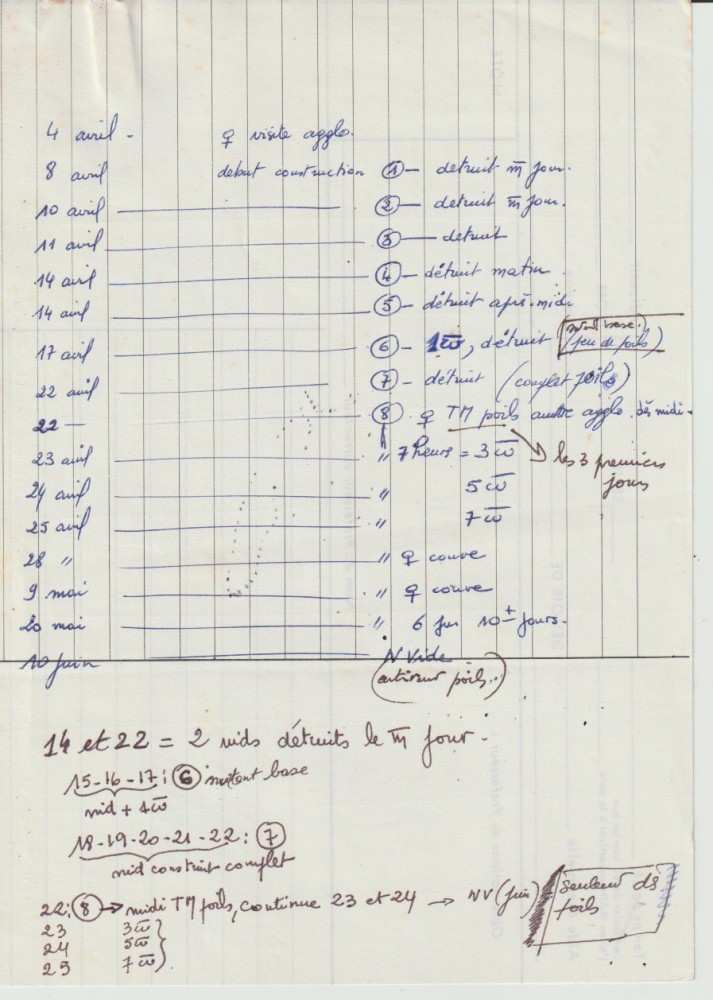 4 avril - ♀ visite agglo.
8 avril début construction ① - détruit m̄ jour.
10 avril ② - détruit m̄ jour.
11 avril ③ - détruit
14 avril ④ - détruit matin
14 avril ⑤ - détruit après-midi
17 avril ⑥ - 1 ω̄, détruit base. (peu de poils)
22 avril ⑦ - détruit (complet poils)
22 — ⑧ ♀ TM poils autre agglo. dès midi -
23 avril " 7 heures = 3 ω̄ les 3 premiers
jours
24 avril " 5 ω̄
25 avril " 7 ω̄
28 " " ♀ couve
9 mai " ♀ couve
20 mai " 6 juv 10 ± jours.
10 juin N Vide
(antérieur poils..)
14 et 22 = 2 nids détruits le m̄ jour.
15-16-17 : ⑥ surtout base
nid + 1 ω̄
18-19-20-21-22 : ⑦
nid construit complet
22 : ⑧ → midi TM poils, continue 23 et 24 → NV (juin)
23 3 ω̄
24 5 ω̄
25 7 ω̄
poils